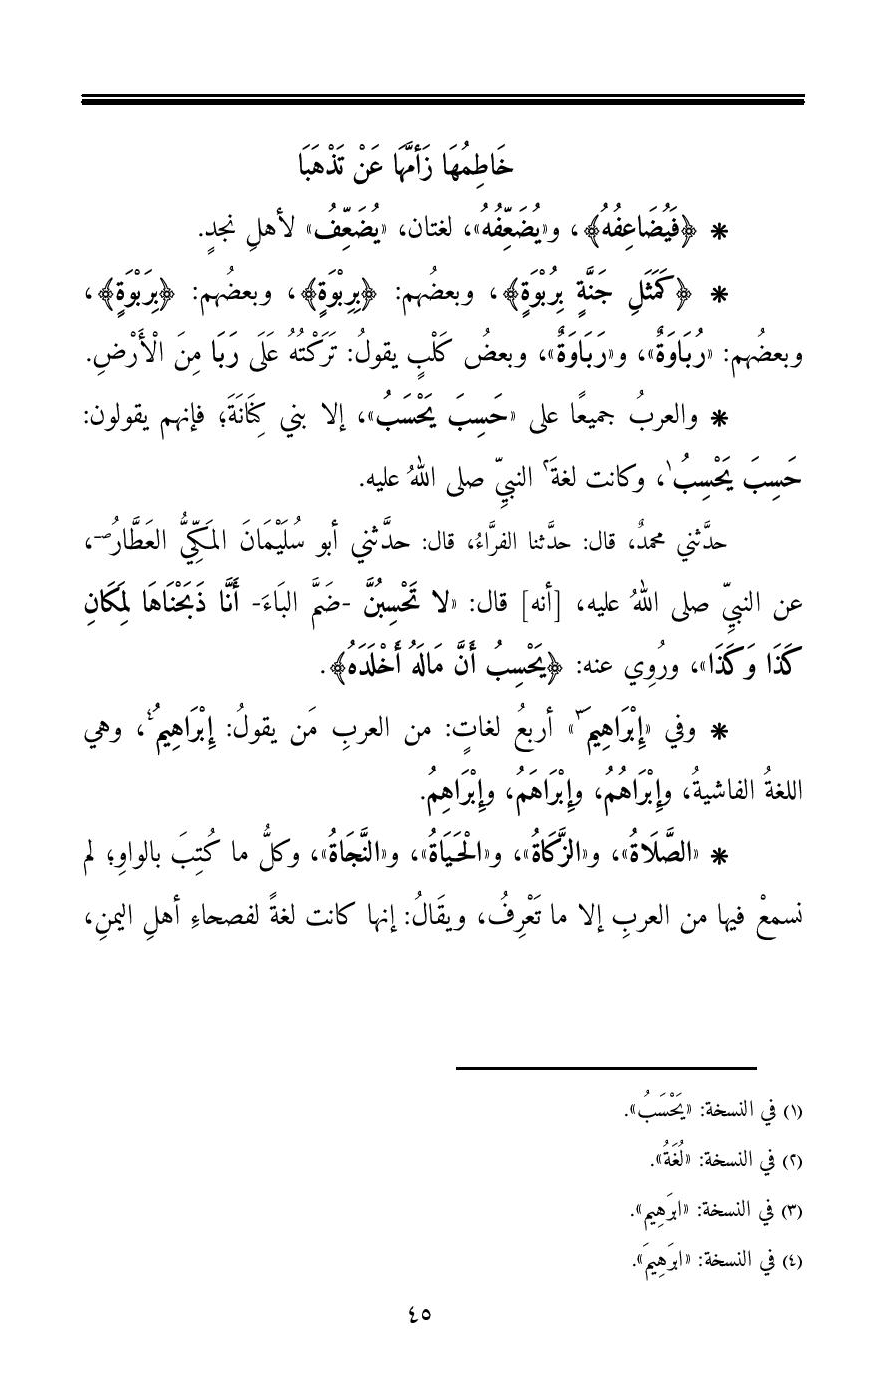 خَاطِمُهَا زَأمَّهَا عَنْ تَذْهَبَا
* ﴿فَيُضَاعِفُهُ﴾، و«يُضَعِّفُهُ»، لغتان، «يُضَعِّفُ» لأهلِ نجدٍ.
* ﴿كَمَثَلِ جَنَّةٍ بِرُبْوَةٍ﴾، وبعضُهم: ﴿بِرِبْوَةٍ﴾، وبعضُهم: ﴿بِرَبْوَةٍ﴾،
وبعضُهم: «رُبَاوَةٌ»، و«رَبَاوَةٌ»، وبعضُ كَلْبٍ يقولُ: تَرَكْتُهُ عَلَى رَبَا مِنَ الْأَرْضِ.
* والعربُ جميعًا على «حَسِبَ يَحْسَبُ»، إلا بني كِنَانَةَ؛ فإنهم يقولون:
حَسِبَ يَحْسِبُ١، وكانت لغةَ٢ النبيِّ صلى اللهُ عليه.
حدَّثني محمدٌ، قال: حدَّثنا الفرَّاءُ، قال: حدَّثني أبو سُلَيْمَانَ المَكِّيُّ العَطَّارُ صـ،
عن النبيِّ صلى اللهُ عليه، [أنه] قال: «لا تَحْسِبُنَّ -ضَمَّ البَاءَ- أَنَّا ذَبَحْنَاهَا لِمَكَانِ
كَذَا وَكَذَا»، ورُوِي عنه: ﴿يَحْسِبُ أَنَّ مَالَهُ أَخْلَدَهُ﴾.
* وفي «إِبْرَاهِيمَ٣» أربعُ لغاتٍ: من العربِ مَن يقولُ: إِبْرَاهِيمُ٤، وهي
اللغةُ الفاشيةُ، وإِبْرَاهُمُ، وإِبْرَاهَمُ، وإِبْرَاهِمُ.
* «الصَّلَاةُ»، و«الزَّكَاةُ»، و«الْحَيَاةُ»، و«النَّجَاةُ»، وكلُّ ما كُتِبَ بالواوِ؛ لم
نسمعْ فيها من العربِ إلا ما تَعْرِفُ، ويقَالُ: إنها كانت لغةً لفصحاءِ أهلِ اليمنِ،
(١) في النسخة: «يَحْسَبُ».
(٢) في النسخة: «لُغَةُ».
(٣) في النسخة: «ابرَهِيم».
(٤) في النسخة: «ابرَهِيمَ».
٤٥